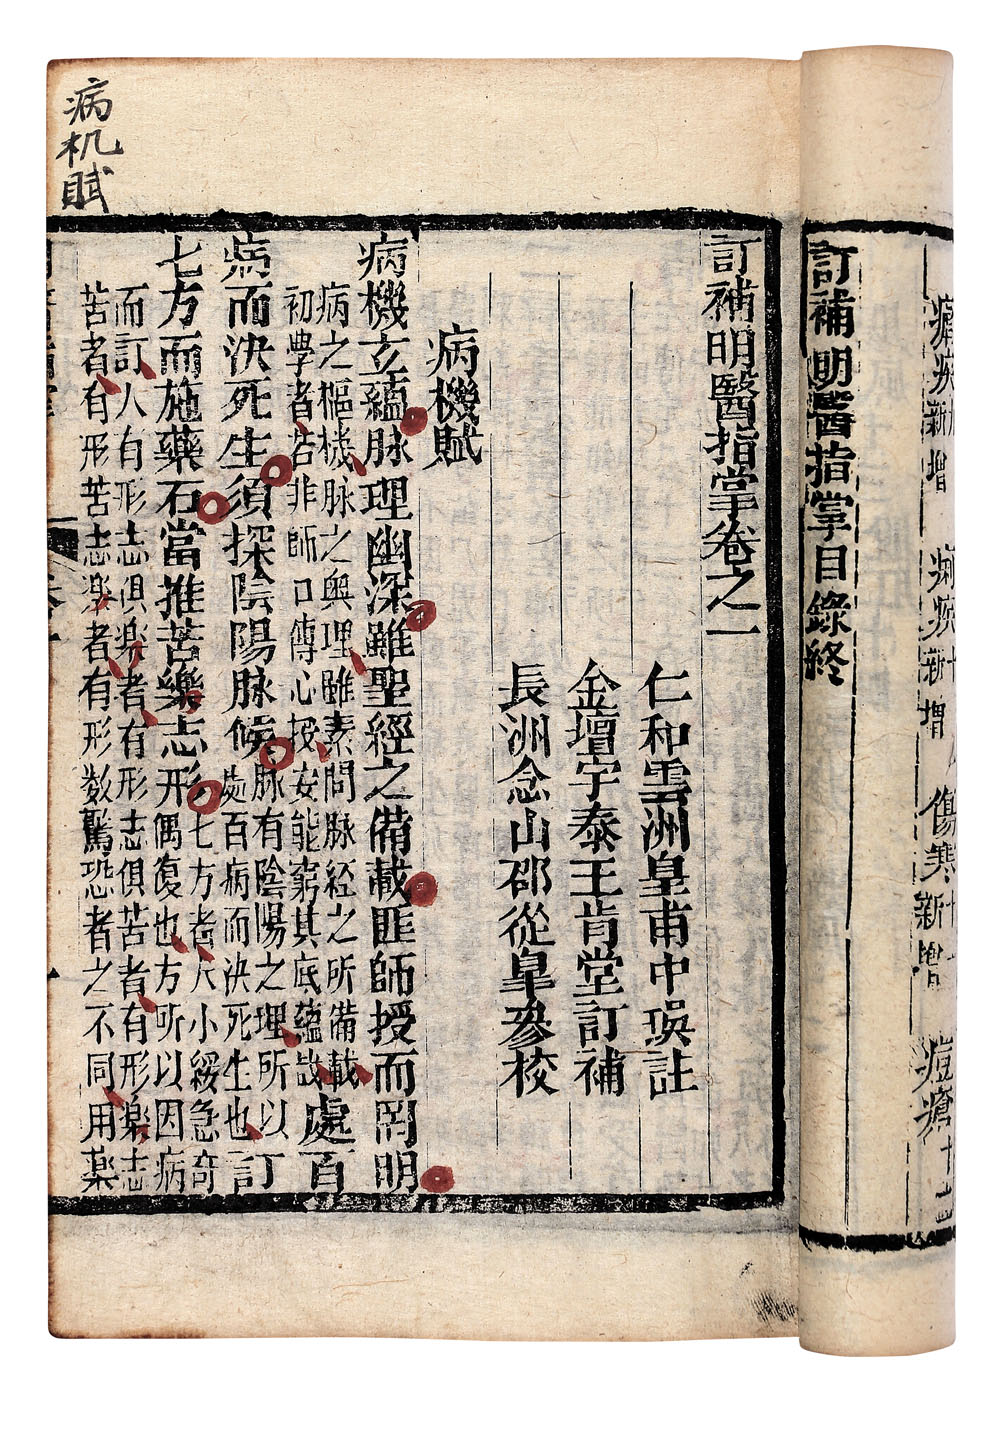 疾新增 痢疾十新增 傷寒新增 痘瘡十
訂補明醫指掌目錄終
訂補明醫指掌卷之一
仁和雲洲皇甫中註
金壇宇泰王肯堂訂補
長洲念山邵從皐參校
病機賦
病機玄蘊脉理幽深雖聖經之備載匪師授而罔明
病之樞機脉之奧理雖素問脉經之所備載
初學者若非師口傳心授安能窮其底蘊哉
處百
病而決死生須探陰陽脉候
脉有陰陽之理所以
處百病而決死生也
訂
七方而施藥石當推苦樂志形
七方者大小緩急奇
偶復也方所以因病
而訂人有形志俱楽者有形志俱苦者有形楽志
苦者有形苦志楽者有形数驚恐者之不同用薬
病机賦